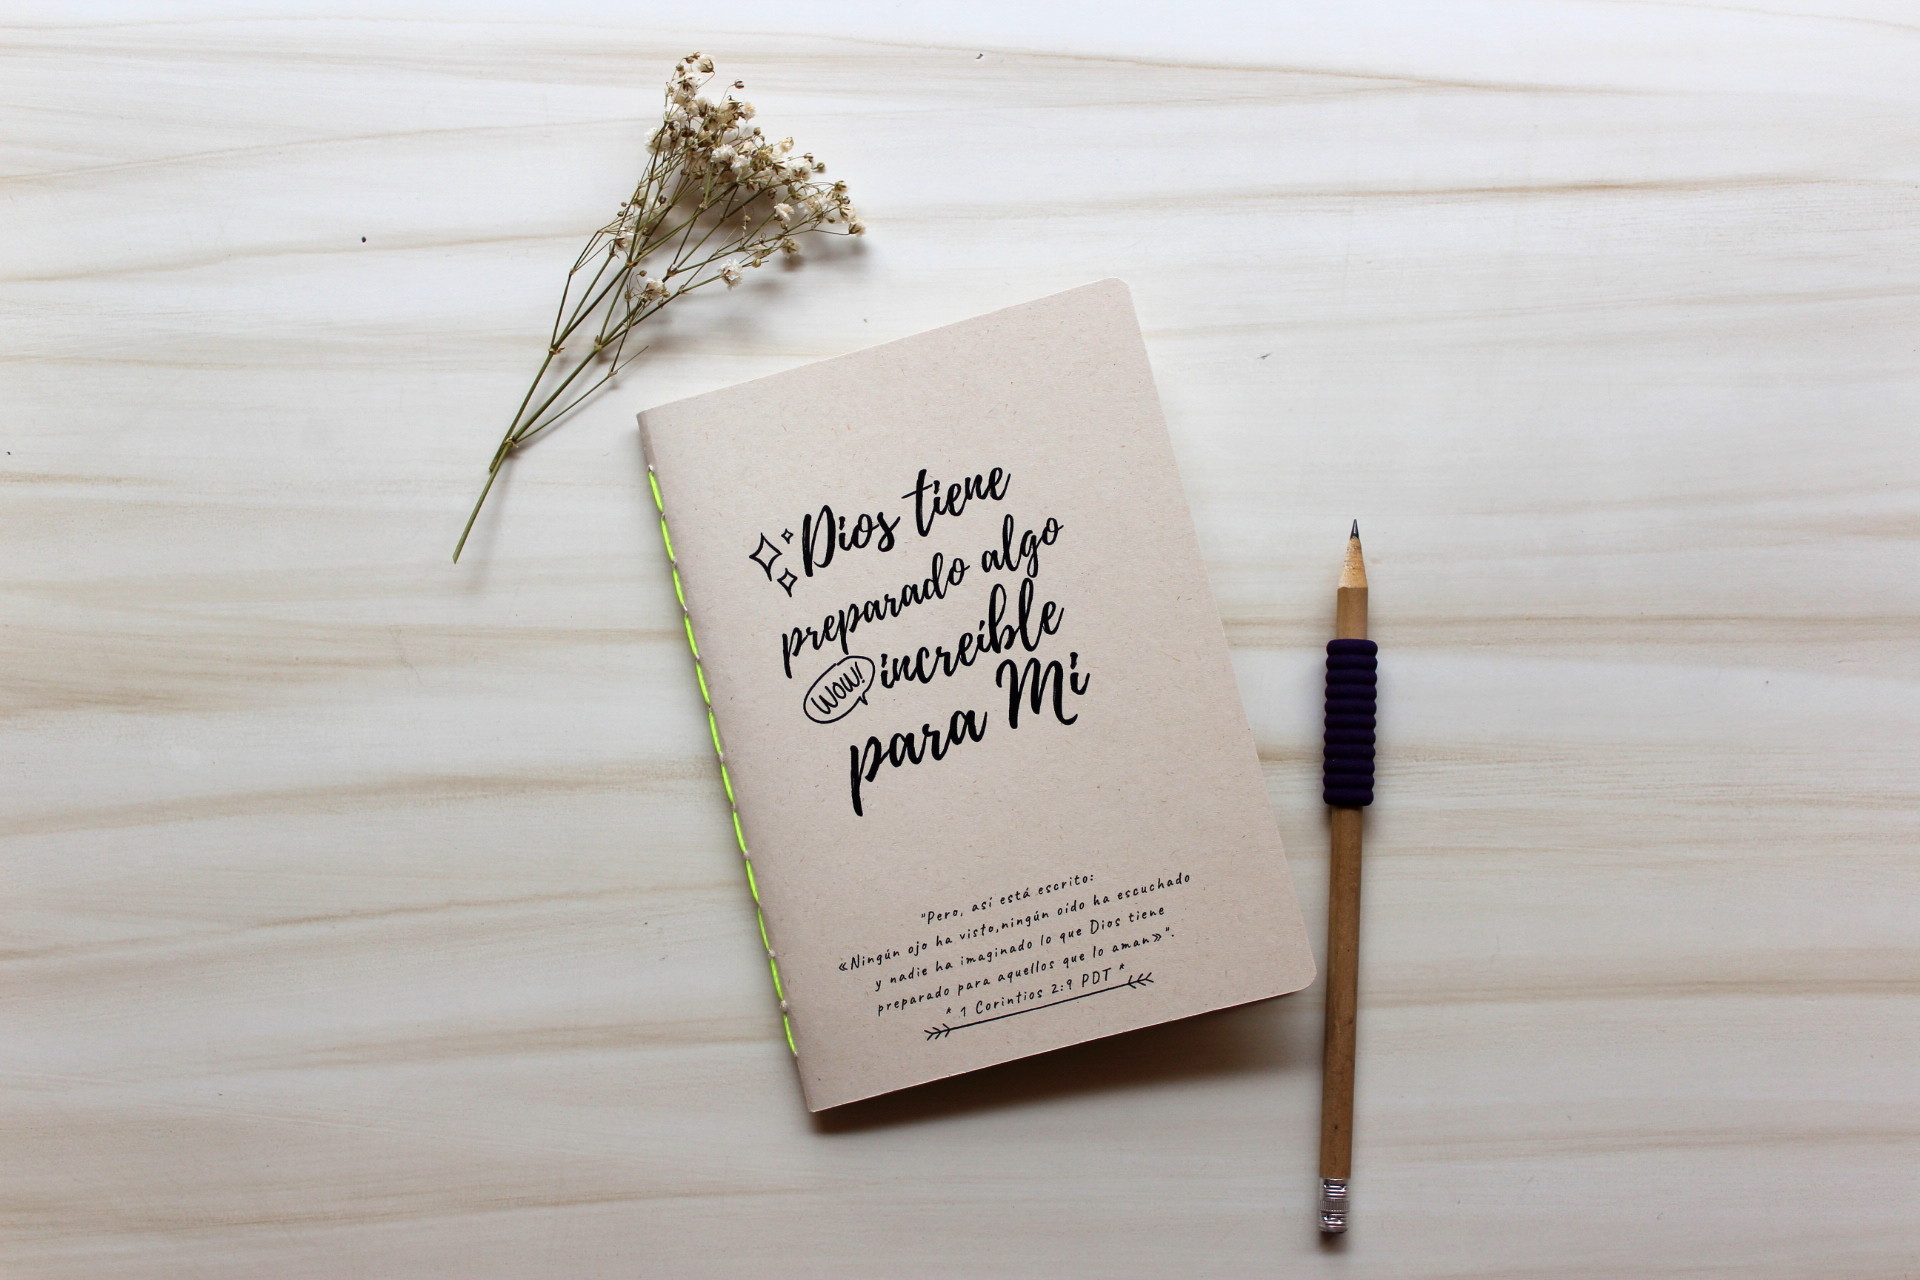 Dios tiene
preparado algo
WOW! increíble
para Mi
"Pero, así está escrito:
«Ningún ojo ha visto,ningún oído ha escuchado
y nadie ha imaginado lo que Dios tiene
preparado para aquellos que lo aman»".
* 1 Corintios 2:9 PDT *